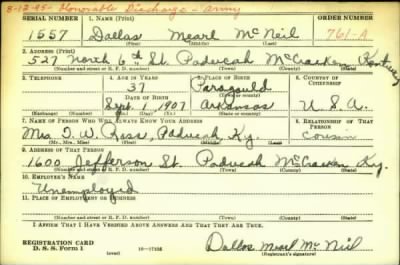 8-12-45- Honorable Discharge - Army
SERIAL NUMBER 1. NAME (Print) ORDER NUMBER
1557 Dallas Mearl McNeil 761-A
(First) (Middle) (Last)
2. ADDRESS (Print)
527 North 6th St. Paducah McCracken Kentucky
(Number and street or R. F. D. number) (Town) (County) (State)
3. TELEPHONE 4. AGE IN YEARS 5. PLACE OF BIRTH 6. COUNTRY OF CITIZENSHIP
37 Paragould
DATE OF BIRTH (Town or county)
Sept. 1 1907 Arkansas U. S. A.
(Exchange) (Number) (Mo.) (Day) (Yr.) (State or country)
7. NAME OF PERSON WHO WILL ALWAYS KNOW YOUR ADDRESS 8. RELATIONSHIP OF THAT PERSON
Mrs. Paducah, Ky. Cousin
(Mr., Mrs., Miss) (First) (Middle) (Last)
9. ADDRESS OF THAT PERSON
1600 Jefferson St. Paducah McCracken Ky.
(Number and street or R. F. D. number) (Town) (County) (State)
10. EMPLOYER'S NAME
Unemployed
11. PLACE OF EMPLOYMENT OR BUSINESS
(Number and street or R. F. D. number) (Town) (County) (State)
I AFFIRM THAT I HAVE VERIFIED ABOVE ANSWERS AND THAT THEY ARE TRUE.
REGISTRATION CARD
D. S. S. Form 1 (over) Dallas Mearl McNeil
(Registrant's signature)